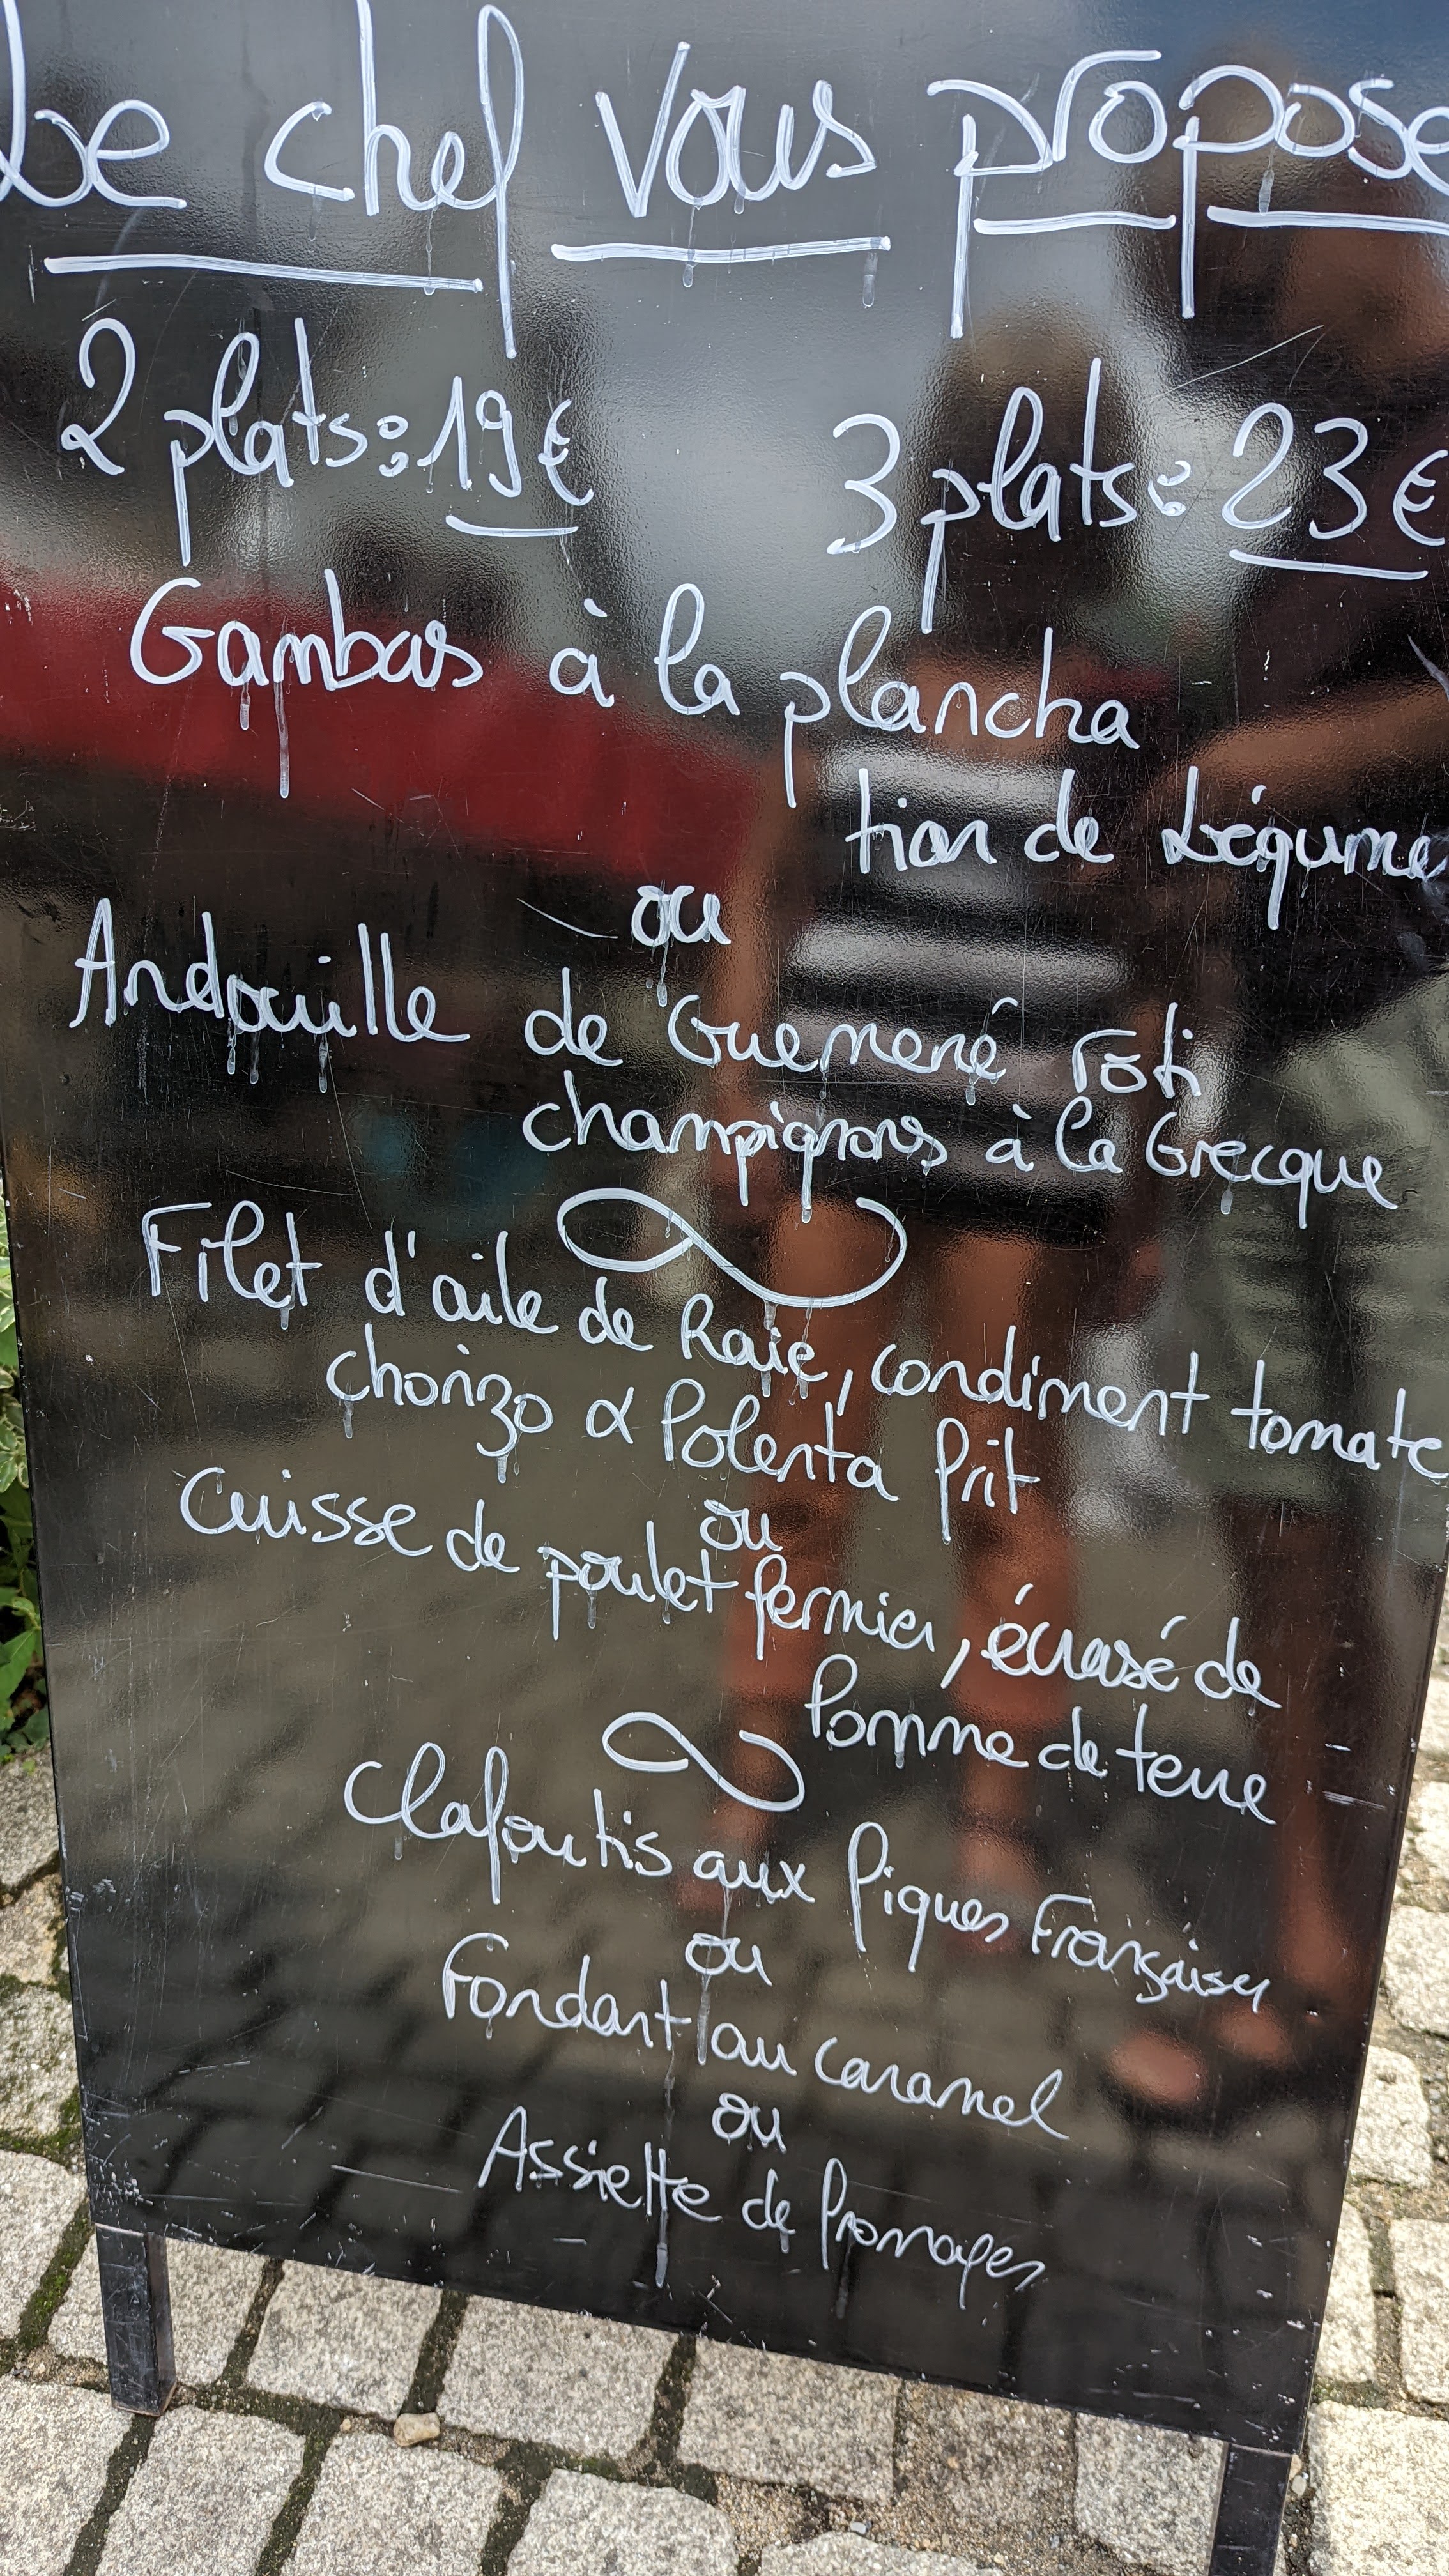 Le chef vous propose
2 plats: 19€ 3 plats: 23€
Gambas à la plancha
tian de Légume
ou
Andouille de Guemené roti
champignons à la Grecque
Filet d'aile de Raie, condiment tomate
chorizo & Polenta frit
ou
Cuisse de poulet fermier, écrasé de
Pomme de terre
Clafoutis aux Figues Françaises
ou
Fondant au caramel
ou
Assiette de fromages